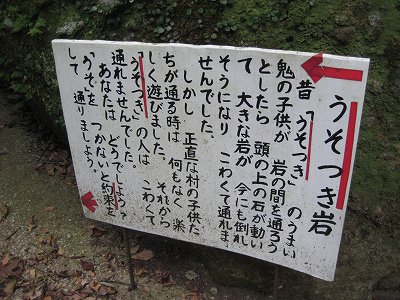 うそつき岩
昔「うそつき」のうまい
鬼の子供が 岩の間を通ろう
としたら 頭の上の石が動い
て 大きな岩が 今にも倒れ
そうになり こわくて通れま
せんでした。
しかし 正直な村の子供た
ちが通る時は 何もなく 楽
しく遊びました。それから
「うそつき」の人は こわくて
通れませんでした。
あなたは どうでしよう?
「うそ」を つかないと約束を
して 通りましよう。